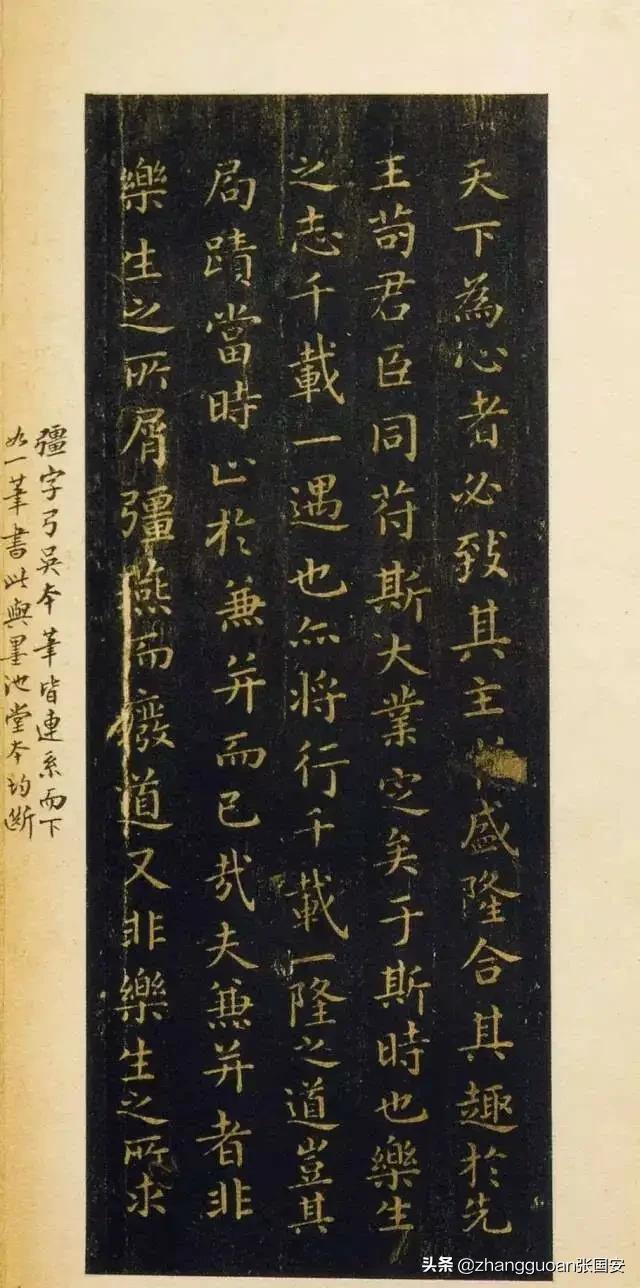 天下為心者必致其主於盛隆合其趣於先
王苟君臣同苻斯大業定矣于斯時也樂生
之志千載一遇也亦將行千載一隆之道豈其
局蹟當時止於兼并而已哉夫兼并者非
樂生之所屑彊燕而癈道又非樂生之所求
彊字弓吳本筆皆連系而下
如一筆書此與墨池堂本均斷
头条 @zhangguoan张国安